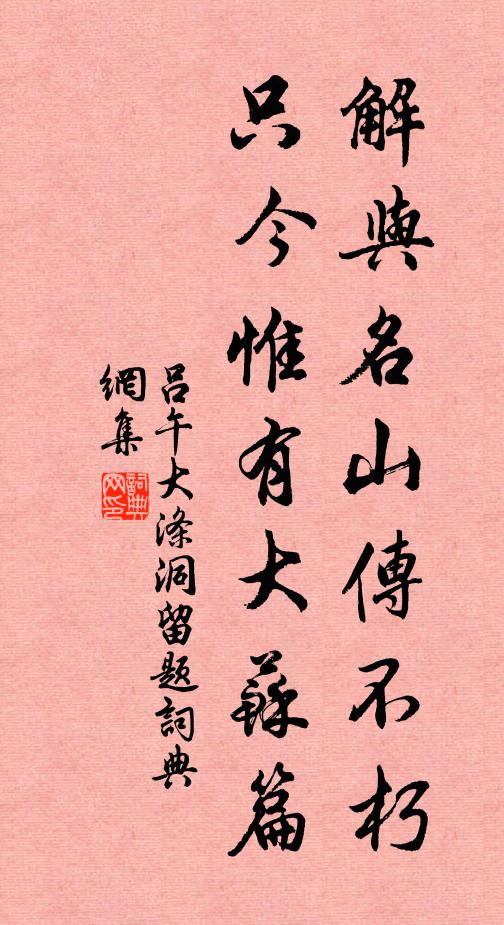 解與名山傳不朽
只今惟有大蘇篇
吕午大滌洞留題詞典
網集
詞典
网印